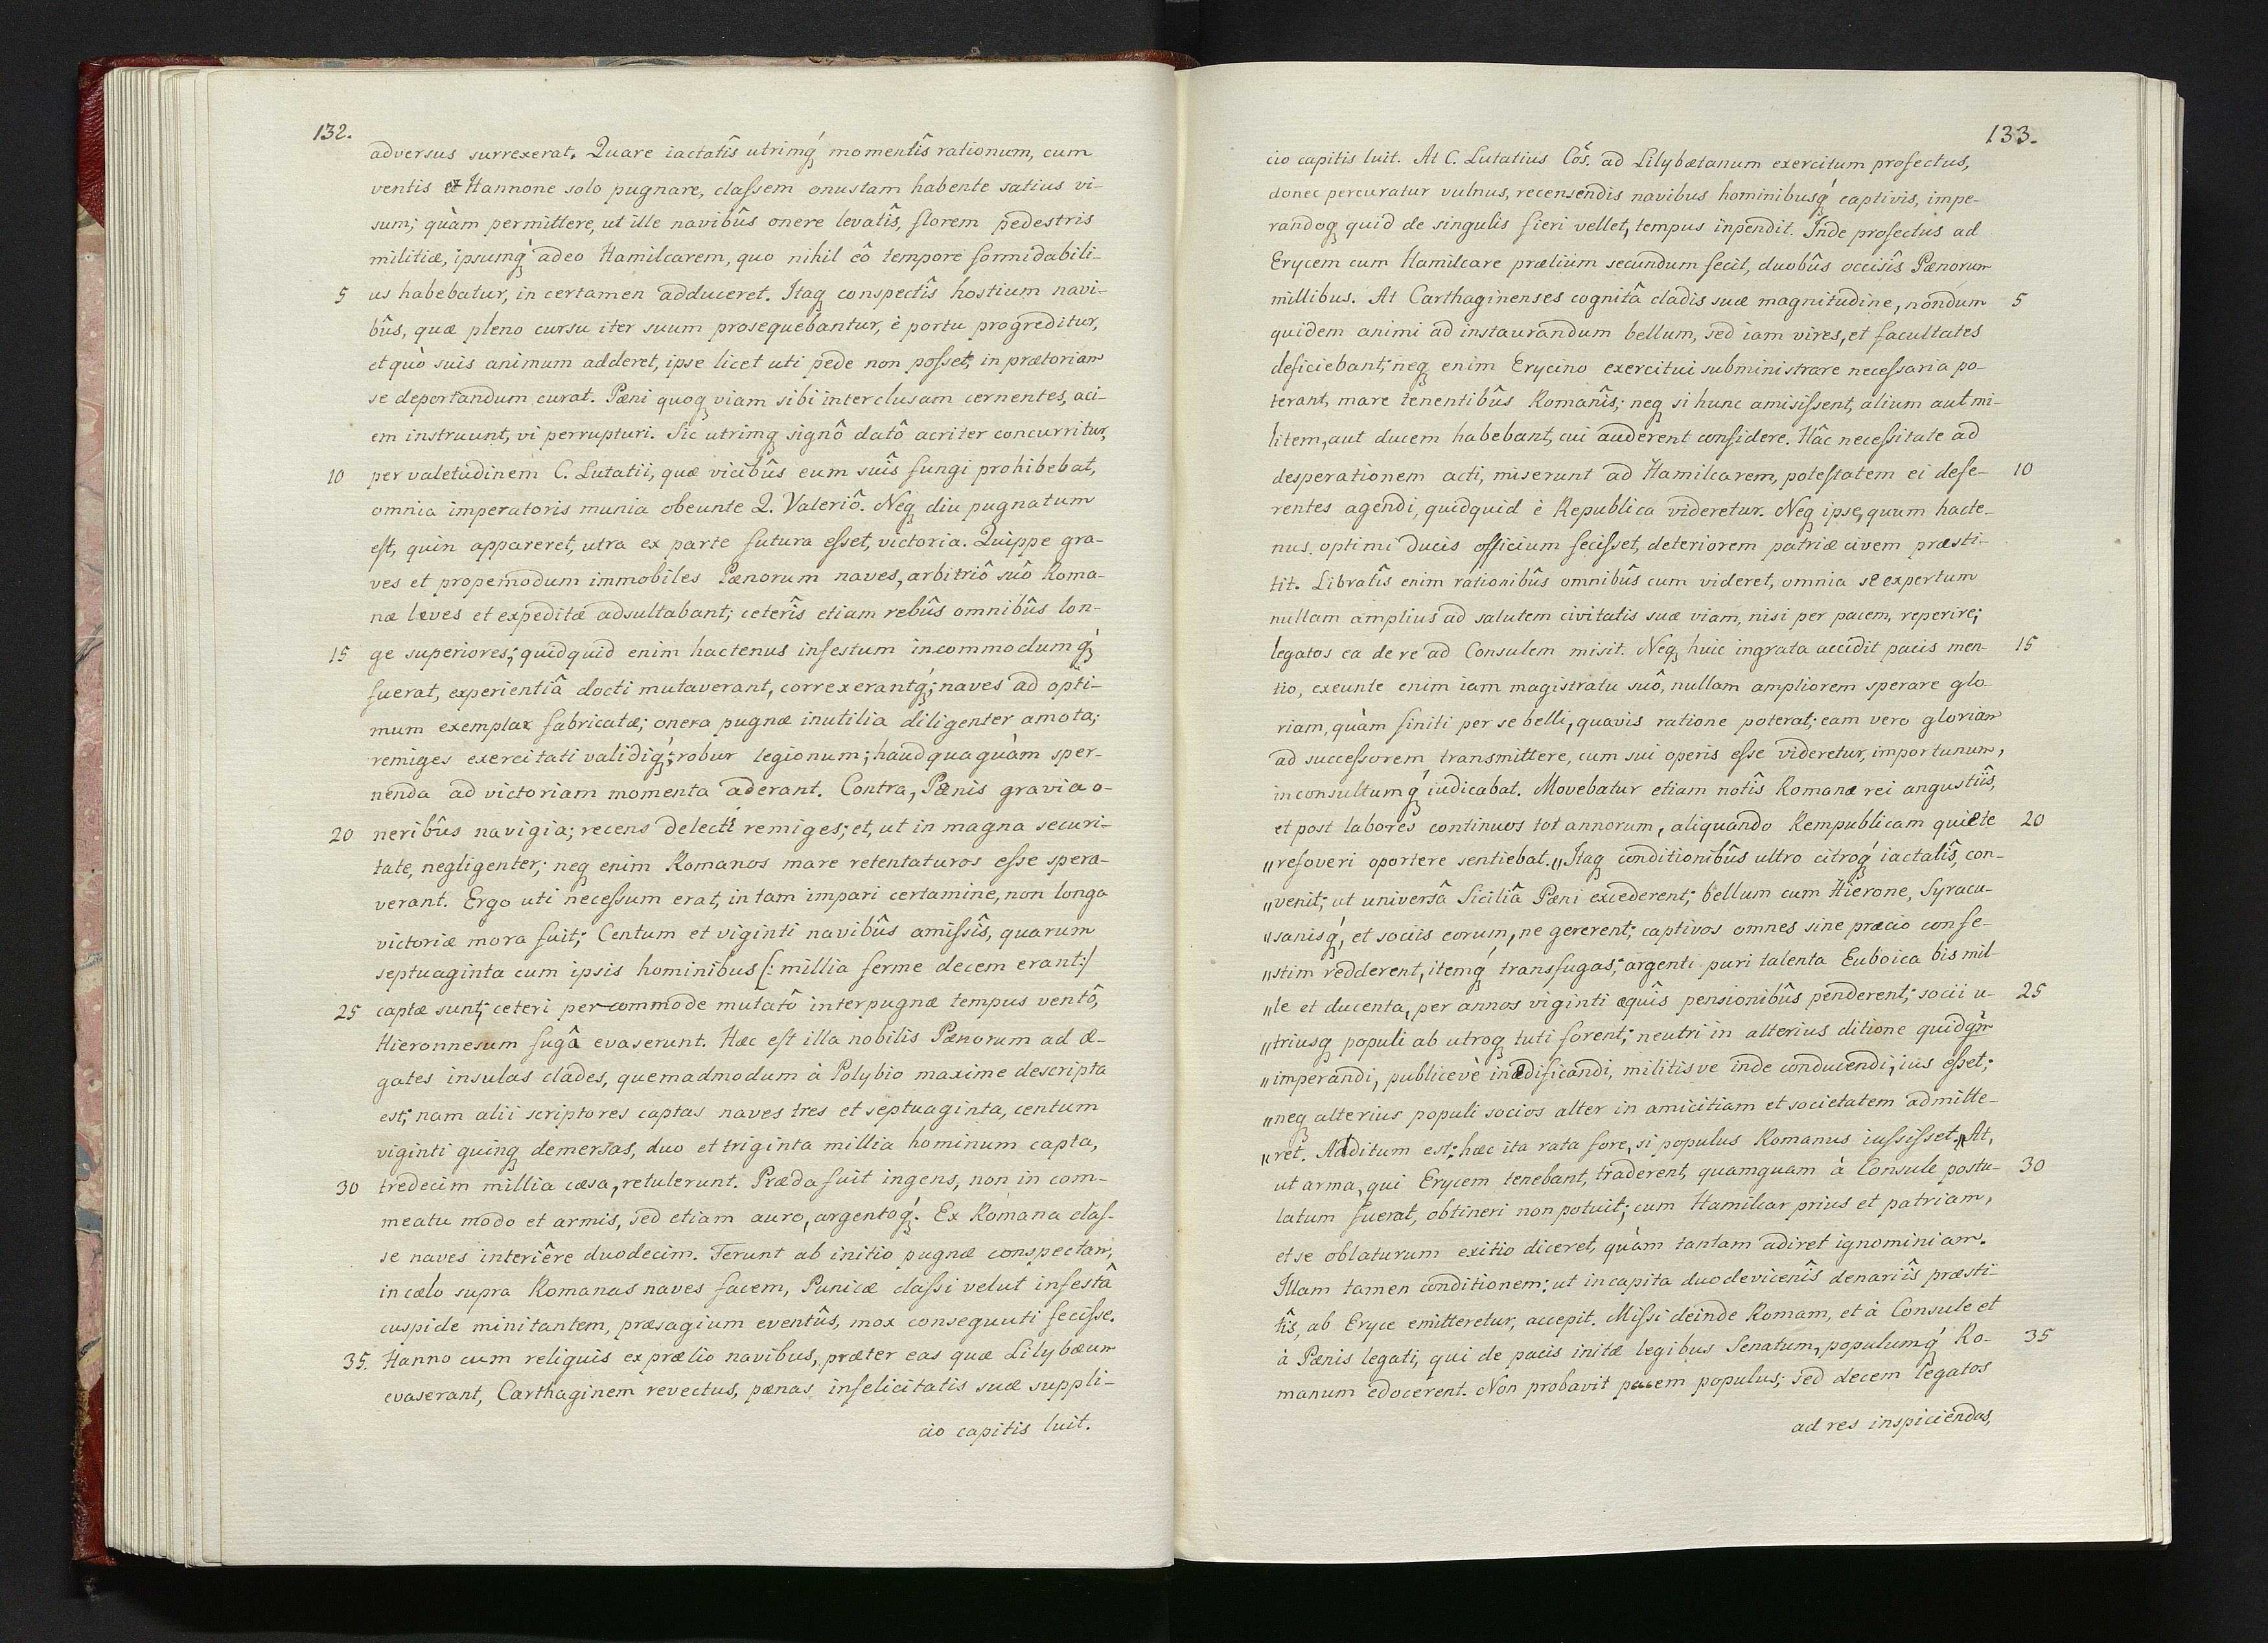 132.
adversus surrexerat. Quare iactatîs utrimq́ momentîs rationum, cum
ventis et Hannone solo pugnare, classem onustam habente satius vi-
sum; quàm permittere, ut ille navibûs onere levatîs, florem pedestris
militiæ, ipsumq́ adeo Hamilcarem, quo nihil eô tempore formidabili-
5 us habebatur, in certamen adduceret. Itaq conspectîs hostium navi-
bûs, quæ pleno cursu iter suum prosequebantur, è portu progreditur,
et quò suis animum adderet, ipse licet uti pede non posset, in prætoriam
se deportandum curat. Pæni quoq viam sibi interclusam cernentes, aci-
em instruunt, vi perrupturi. Sic utrimq signô datô acriter concurritur,
10 per valetudinem C. Lutatii, quæ vicibûs eum suîs fungi prohibebat,
omnia imperatoris munia obeunte Q. Valeriô. Neq diu pugnatum
est, quin appareret, utra ex parte futura esset, victoria. Quippe gra-
ves et propemodum immobiles Pænorum naves, arbitriô suô Roma-
næ leves et expeditæ adsultabant; ceterîs etiam rebûs omnibûs lon-
15 ge superiores; quidquid enim hactenus infestum incommodumq́
fuerat, experientiâ docti mutaverant, correxerantq́; naves ad opti-
mum exemplar fabricatæ; onera pugnæ inutilia diligenter amota;
remiges exercitati validiq́; robur legionum; haudquaquàm sper-
nenda ad victoriam momenta aderant. Contra, Pænis gravia o-
20 neribûs navigia; recens delecti remiges; et, ut in magna securi-
tate, negligenter; neq enim Romanos mare retentaturos esse spera-
verant. Ergo uti necessum erat, in tam impari certamine, non longa
victoriæ mora fuit; Centum et viginti navibûs amissîs, quarum
septuaginta cum ipsis hominibus [: millia ferme decem erant:]
25 captæ sunt; ceteri percommode mutatô inter pugnæ tempus ventô,
Hieronnesum fugâ evaserunt. Hæc est illa nobilis Pænorum ad æ-
gates insulas clades, quemadmodum à Polybio maxime descripta
est; nam alii scriptores captas naves tres et septuaginta, centum
viginti quinq demersas, duo et triginta millia hominum capta,
30 tredecim millia cæsa, retulerunt. Præda fuit ingens, non in com-
meatu modo et armis, sed etiam auro, argentoq́. Ex Romana clas-
se naves interiêre duodecim. Ferunt ab initio pugnæ conspectam,
in cælo supra Romanas naves facem, Punicæ classi velut infestâ
cuspide minitantem, præsagium eventûs, mox consequuti fecisse.
35. Hanno cum reliquis ex prælio navibus, præter eas quæ Lilybæum
evaserant, Carthaginem revectus, pænas infelicitatis suæ suppli-
cio capitis luit.
133.
cio capitis luit. At C. Lutatius Cos̃. ad Lilybætanum exercitum profectus,
donec percuratur vulnus, recensendis navibus hominibusq́ captivis, impe-
randoq quid de singulis fieri vellet, tempus inpendit. Inde profectus ad
Erycem cum Hamilcare prælium secundum fecit, duobûs occisîs Pænorum
millibus. At Carthaginenses cognitâ cladis suæ magnitudine, nondum 5
quidem animi ad instaurandum bellum, sed iam vires, et facultates
deficiebant; neq enim Erycino exercitui subministrare necessaria po-
terant, mare tenentibûs Romanîs; neq si hunc amisissent, alium aut mi-
litem, aut ducem habebant, cui auderent considere. Hâc necessitate ad
desperationem acti, miserunt ad Hamilcarem, potestatem ei defe- 10
rentes agendi, quidquid è Republica videretur. Neq ipse, quum hacte-
nus optimi ducis officium fecisset, deteriorem patriæ civem præsti-
tit. Libratîs enim rationibûs omnibûs cum videret, omnia se expertum
nullam amplius ad salutem civitatis suæ viam, nisi per pacem, reperire;
legatos ea de re ad Consulem misit. Neq huic ingrata accidit pacis men- 15
tio, exeunte enim iam magistratu suô, nullam ampliorem sperare glo-
riam, quàm finiti per se belli, quavis ratione poterat; eam vero gloriam
ad successorem transmittere, cum sui operis esse videretur, importunum,
inconsultumq́ iudicabat. Movebatur etiam notîs Romanæ rei angustiîs,
et post labores continuos tot annorum, aliquando Rempublicam quiete 20
„refoveri oportere sentiebat. „Itaq conditionibûs ultro citroq́ iactatîs, con-
„venit; ut universâ Siciliâ Pæni excederent; bellum cum Hierone, Syracu-
„sanisq́, et sociis eorum, ne gererent; captivos omnes sine præcio confe-
„stim redderent, itemq́ transfugas; argenti puri talenta Euboica bis mil-
„le et ducenta, per annos viginti æquîs pensionibûs penderent; socii u- 25
„triusq populi ab utroq tuti forent; neutri in alterius ditione quidqm̃
„imperandi, publicevè inædificandi, militisve inde conducendi, ius esset;
„neq alterius populi socios alter in amicitiam et societatem admitte-
„ret. Additum est: hæc ita rata fore, si populus Romanus iussisset.„ At,
ut arma, qui Erycem tenebant, traderent, quamquam à Consule postu- 30
latum fuerat, obtineri non potuit; cum Hamilcar prius et patriam,
et se oblaturum exitio diceret, quàm tantam adiret ignominiam.
Illam tamen conditionem: ut in capita duodevicenîs denariîs præsti-
tîs, ab Eryce emitteretur, accepit. Missi deinde Romam, et à Consule et
à Pænis legati, qui de pacis initæ legibus Senatum, populumq́ Ro- 35
manum edocerent. Non probavit pacem populus; sed decem legatos
ad res inspiciendas,